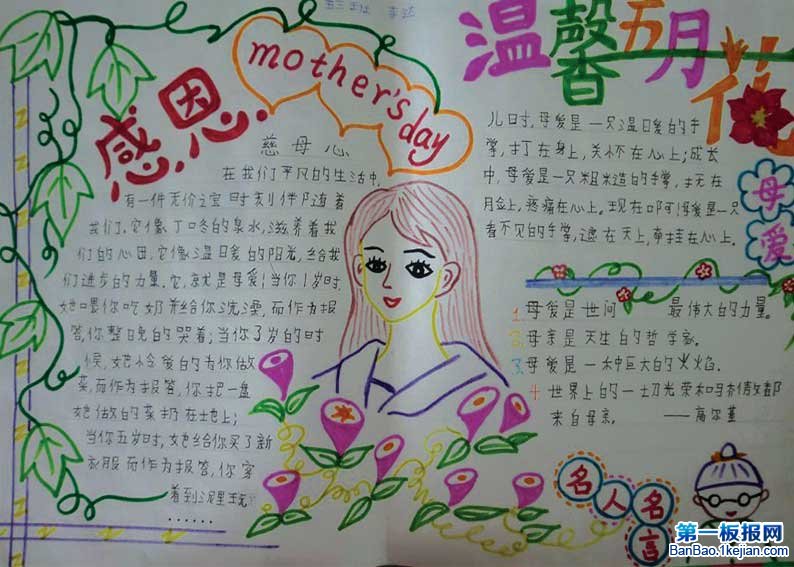 感恩
mother's
day
慈母心
在我们平凡的生活中,
有一件无价之宝时刻伴随着
我们,它像丁冬的泉水,滋养着我
们的心田,它像温暖的阳光,给我
们进步的力量。它,就是母爱!当你1岁时,
她喂你吃奶并给你洗澡,而作为报
答,你整晚的哭着;当你3岁的时
候,她怜爱的为你做
菜,而作为报答,你把一盘
她做的菜扔在地上;
当你五岁时,她给你买了新
衣服而作为报答,你穿
着到泥里玩
……
温馨五月花
母爱
儿时,母爱是一只温暖的手
掌,打在身上,关怀在心上;成长
中,母爱是一只粗糙的手掌,抚在
脸上,疼痛在心上。现在啊母爱是一只
看不见的手掌,遮在天上,牵挂在心上。
1.母爱是世间 最伟大的力量。
2.母亲是天生的哲学家。
3.母爱是一种巨大的火焰。
4.世界上的一切光荣和骄傲都
来自母亲。 ——高尔基
名人名言
第一板报网
BanBao.1kejian.com